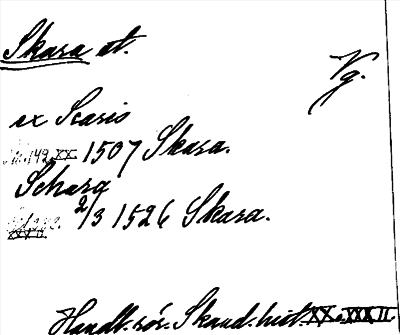 Skara st.
Vg.
ex Scaris
XX 1507 Skara.
Scharg
2/3 1526 Skara.
Handl. rör. Skand. hist. XX o. XXXII